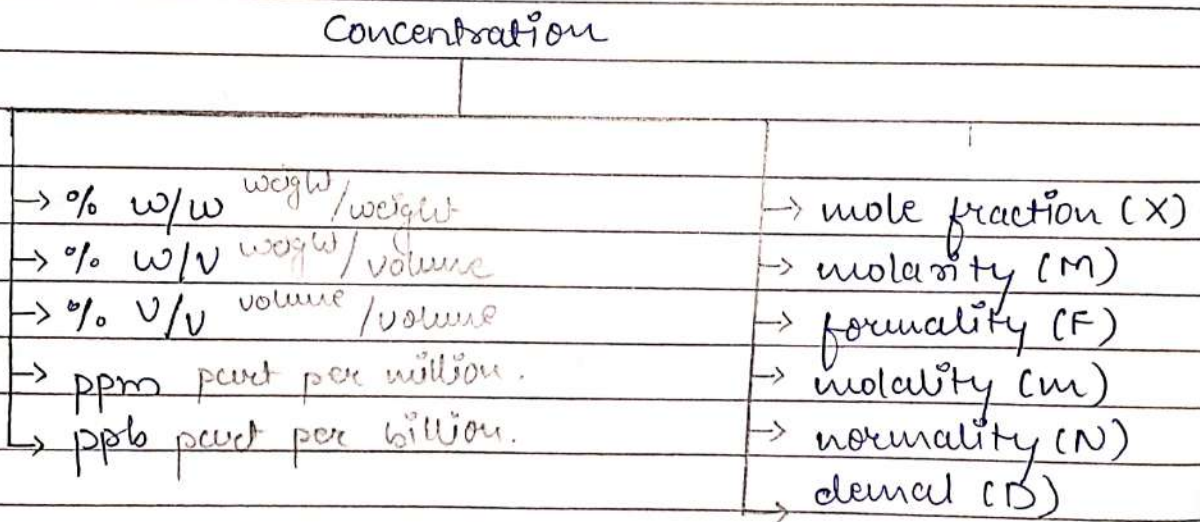 Concentration
→ % w/w weight/weight
→ % w/v weight/volume
→ % v/v volume/volume
→ ppm part per million.
→ ppb part per billion.
→ mole fraction (X)
→ molarity (M)
→ formality (F)
→ molality (m)
→ normality (N)
→ demal (D)